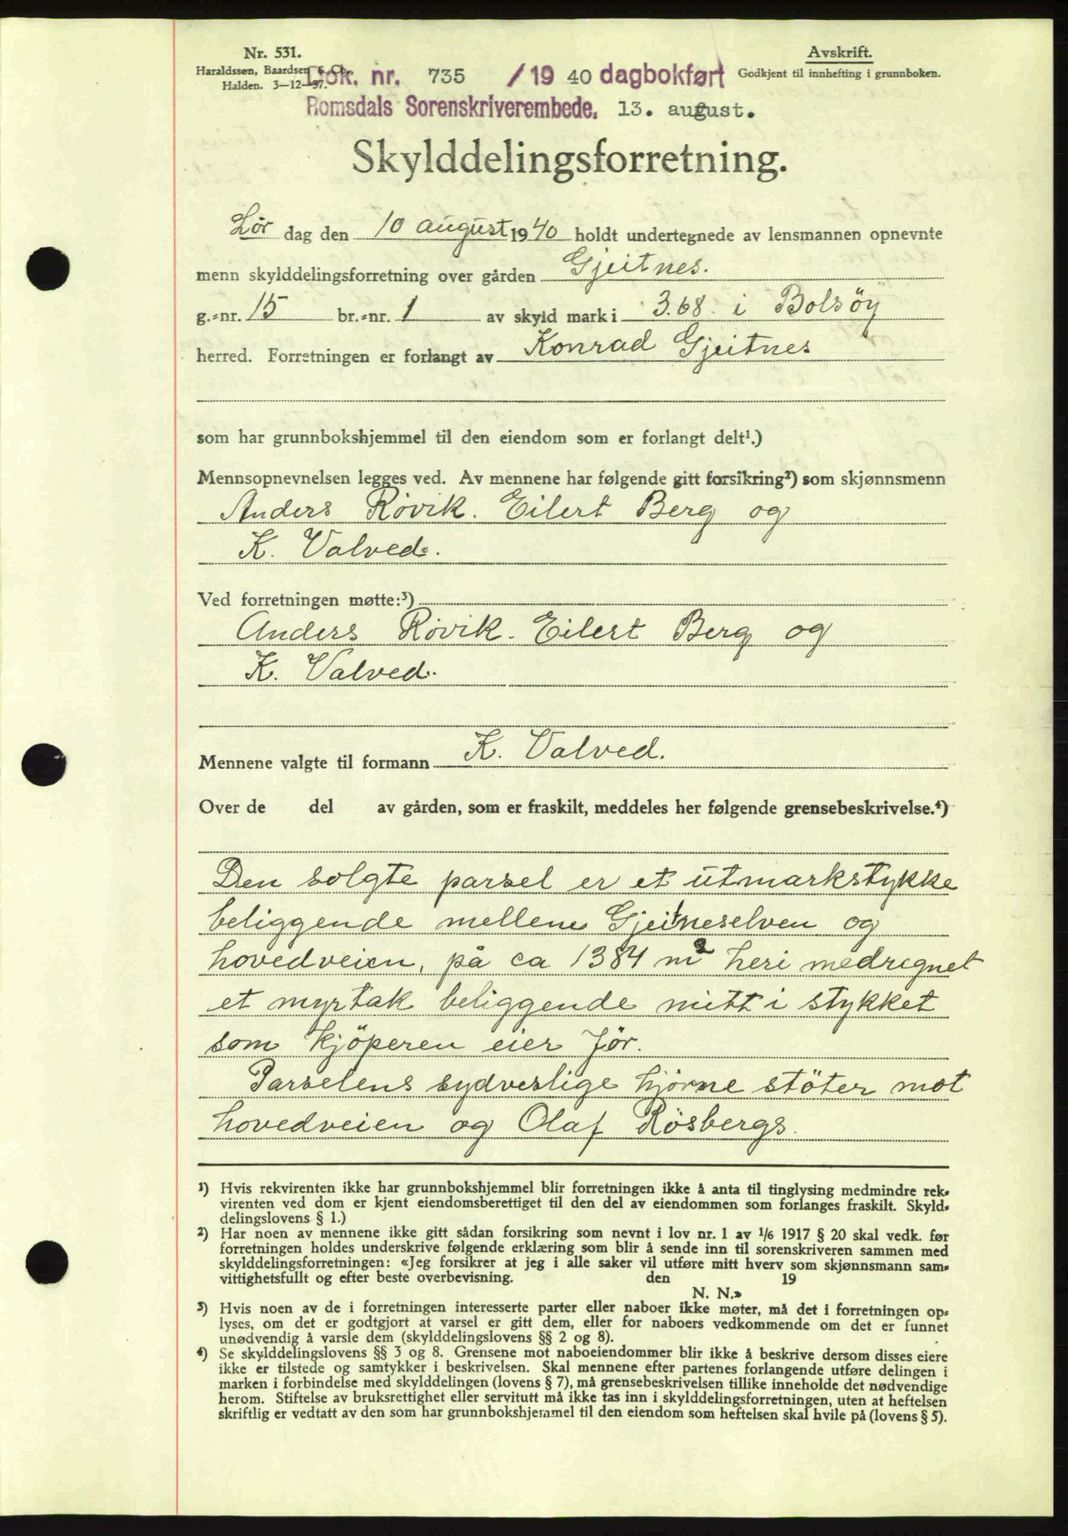 Nr. 531.
Haraldssen, Baardsen & Co.
Halden. 3-12-37.
Avskrift.
Godkjent til innhefting i grunnboken.
Dok. nr. 735 /19 40 dagbokført
Romsdals Sorenskriverembede. 13. august.
Skylddelingsforretning.
Lør dag den 10 august 1940 holdt undertegnede av lensmannen opnevnte
menn skylddelingsforretning over gården Gjeitnes.
g.=nr. 15 br.=nr. 1 av skyld mark i 3.68 i Bolsöy
herred. Forretningen er forlangt av Konrad Gjeitnes
som har grunnbokshjemmel til den eiendom som er forlangt delt¹.)
Mennsopnevnelsen legges ved. Av mennene har følgende gitt forsikring²) som skjønnsmenn
Anders Røvik. Eilert Berg og
K. Valved.
Ved forretningen møtte:³)
Anders Røvik. Eilert Berg og
K. Valved.
Mennene valgte til formann K. Valved.
Over de del av gården, som er fraskilt, meddeles her følgende grensebeskrivelse.⁴)
Den solgte parsel er et utmarkstykke
beliggende mellem Gjeitneselven og
hovedveien, på ca 1384 m² heri medregnet
et myrtak beliggende mitt i stykket
som kjöperen eier för.
Parselens sydveslige hjörne stöter mot
hovedveien og Olaf Rösbergs.
¹) Hvis rekvirenten ikke har grunnbokshjemmel blir forretningen ikke å anta til tinglysing medmindre rek=
virenten ved dom er kjent eiendomsberettiget til den del av eiendommen som forlanges fraskilt. Skyld=
delingslovens § 1.)
²) Har noen av mennene ikke gitt sådan forsikring som nevnt i lov nr. 1 av 1/6 1917 § 20 skal vedk. før
forretningen holdes underskrive følgende erklæring som blir å sende inn til sorenskriveren sammen med
skylddelingsforretningen: «Jeg forsikrer at jeg i alle saker vil utføre mitt hverv som skjønnsmann sam=
vittighetsfullt og efter beste overbevisning. den 19
N. N.»
³) Hvis noen av de i forretningen interesserte parter eller naboer ikke møter, må det i forretningen op=
lyses, om det er godtgjort at varsel er gitt dem, eller for naboers vedkommende om det er funnet
unødvendig å varsle dem (skylddelingslovens §§ 2 og 8).
⁴) Se skylddelingslovens §§ 3 og 8. Grensene mot naboeiendommer blir ikke å beskrive dersom disses eiere
ikke er tilstede og samtykker i beskrivelsen. Skal mennene efter partenes forlangende utføre delingen i
marken i forbindelse med skylddelingen (lovens § 7), må grensebeskrivelsen tillike inneholde det nødvendige
herom. Stiftelse av bruksrettighet eller servitutt må ikke tas inn i skylddelingsforretningen, uten at heftelsen
skriftlig er vedtatt av den som har grunnbokshjemmel til den eiendom som heftelsen skal hvile på (lovens § 5).